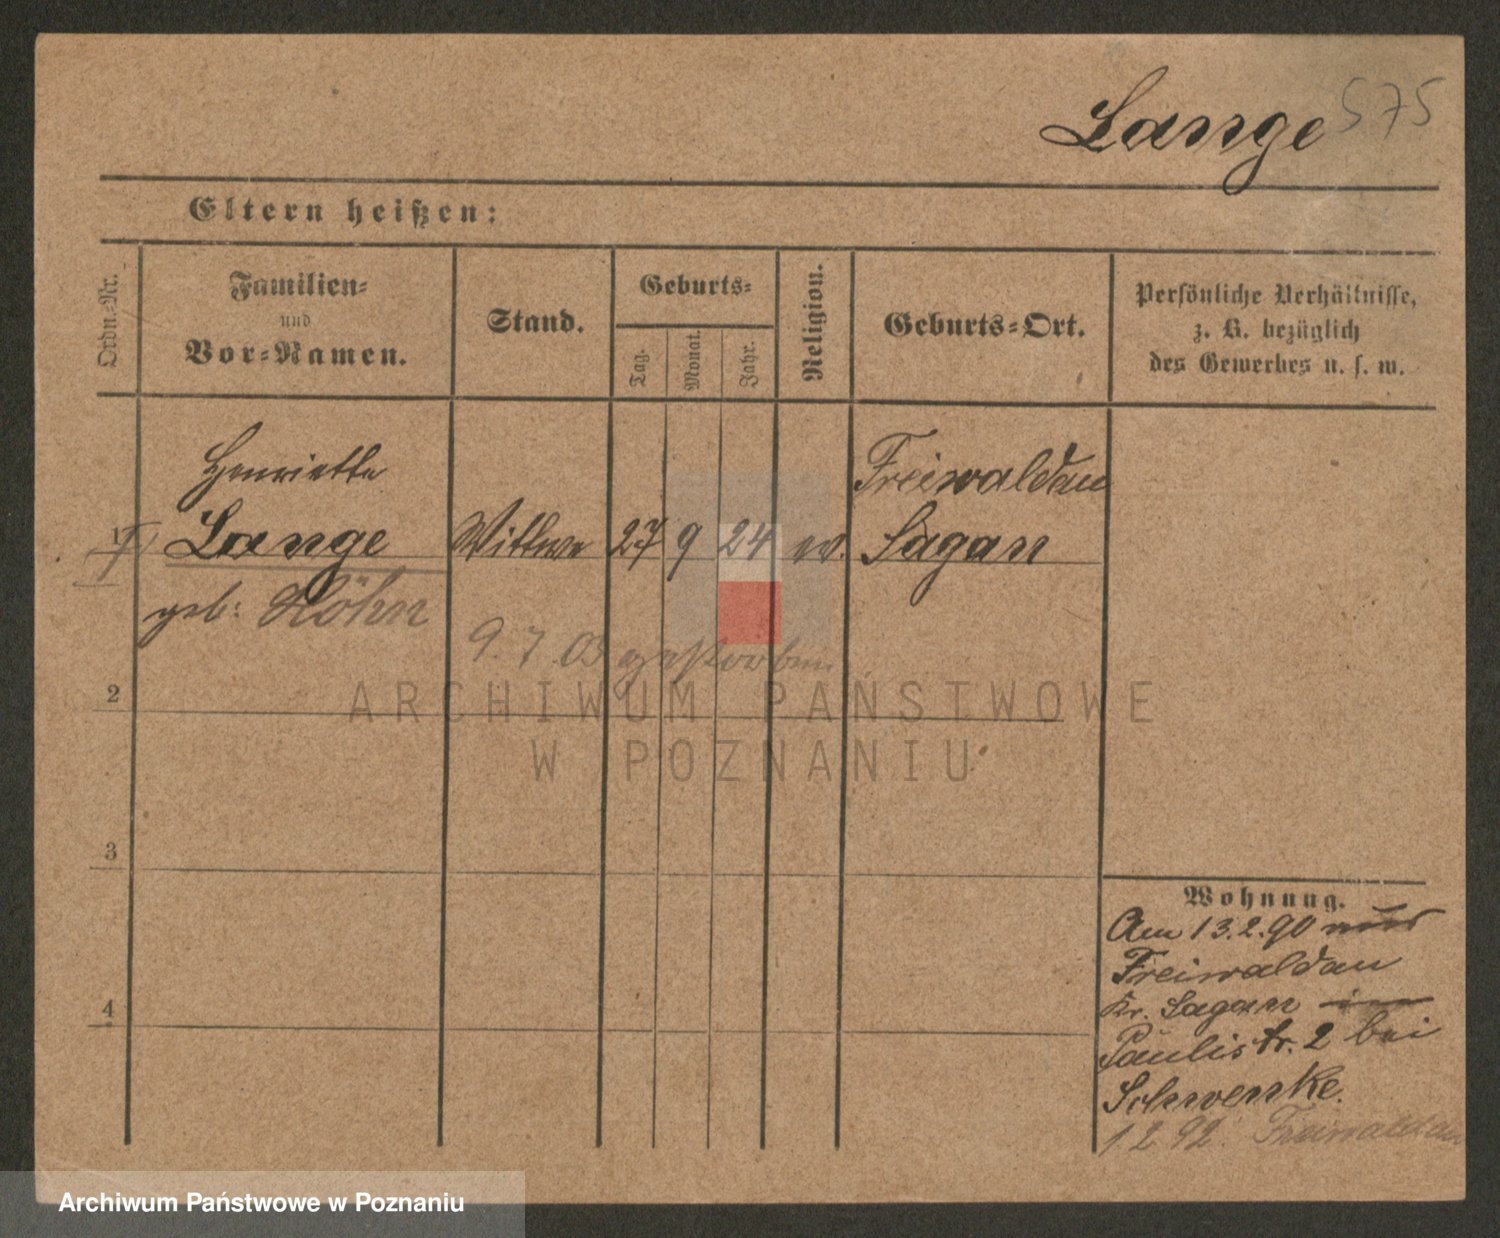 Lange 575
Eltern heißen:
Ordn.-Nr.
Familien-
und
Vor-Namen.
Stand.
Geburts-
Tag.
Monat.
Jahr.
Religion.
Geburts-Ort.
Persönliche Verhältnisse,
z. B. bezüglich
des Gewerbes u. s. w.
Henriette
Freiwaldau
1 Lange Wittwe 27 9 24 ev. Sagan
geb: Röhn
9. 7. 03 gestorben
2
3
4
Wohnung.
Am 13.2.90 aus
Freiwaldau
Kr. Sagan in
Paulistr. 2 bei
Schwenke.
1 2 92. Freiwaldau
ARCHIWUM PAŃSTWOWE
W POZNANIU
Archiwum Państwowe w Poznaniu